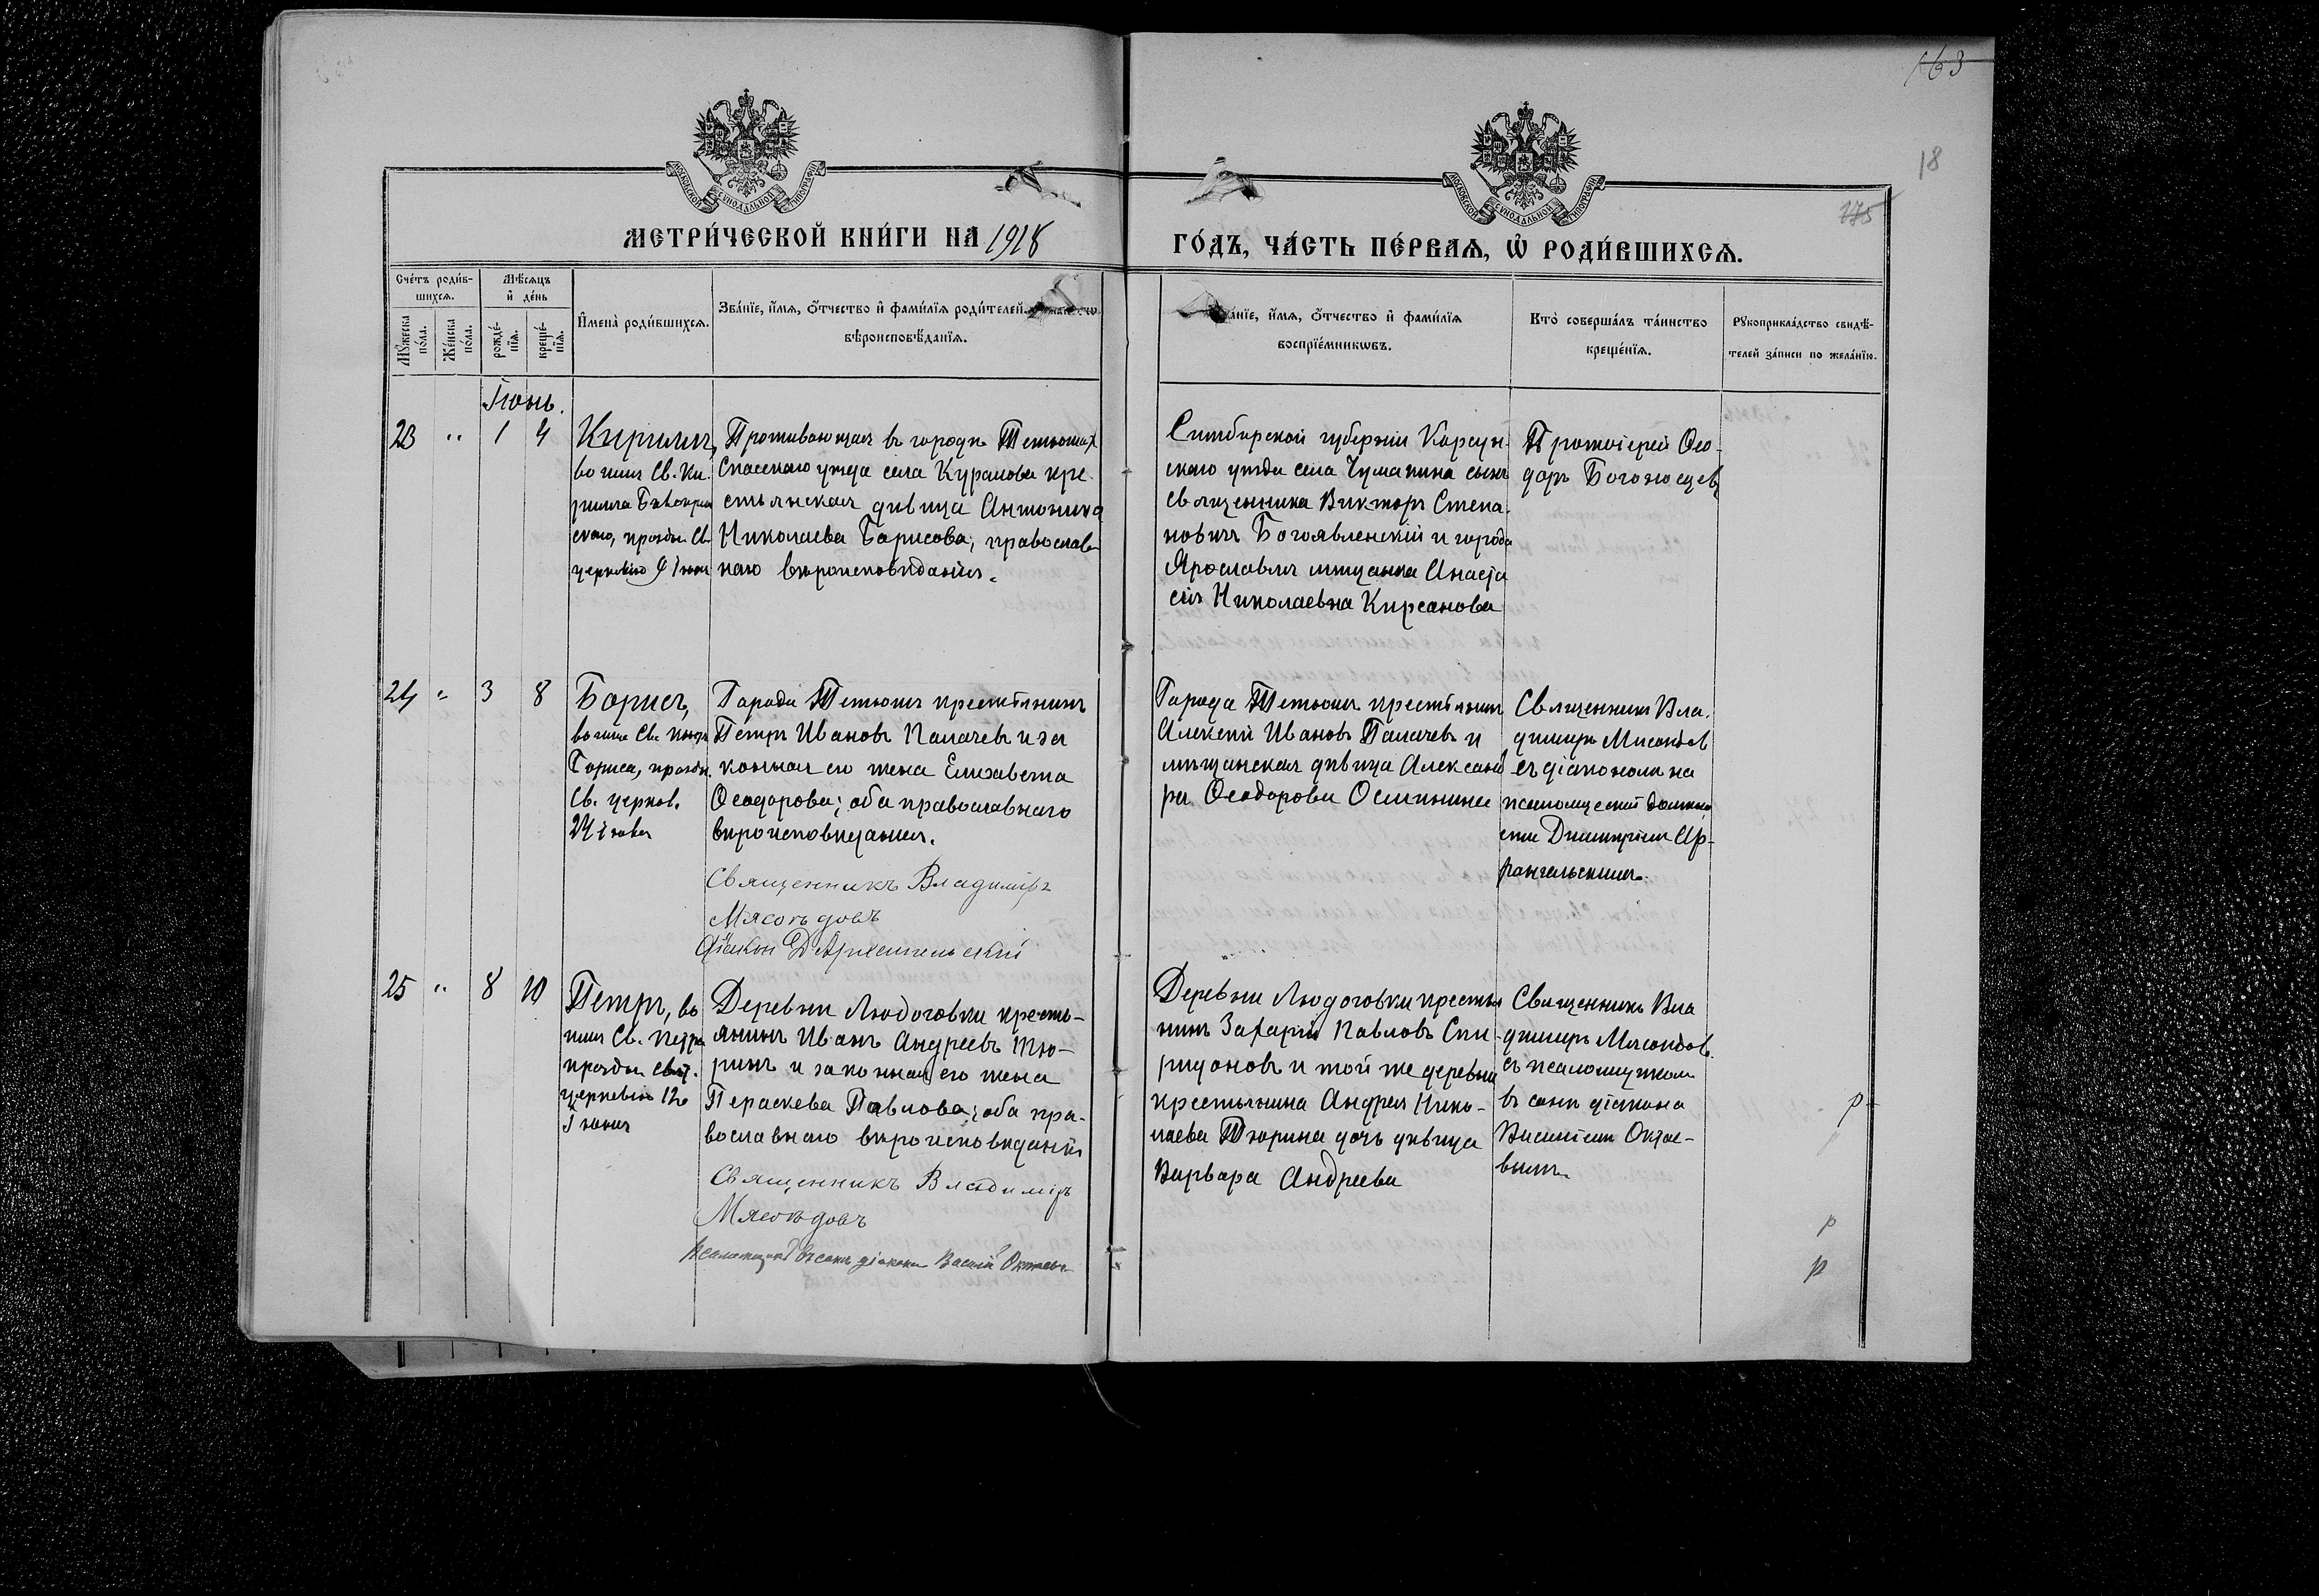 163
18
175
МОСКОВСКОЙ СѴНОДАЛЬНОЙ ТИПОГРАФІИ
МОСКОВСКОЙ СѴНОДАЛЬНОЙ ТИПОГРАФІИ
МЕТРИ́ЧЕСКОЙ КНИ́ГИ НА 1918
ГО́ДЪ, ЧА́СТЬ ПЕ́РВАѦ, Ѡ҆ РОДИ́ВШИХСѦ.
Сче́тъ роди́в-
шихсѧ.
Мѣ́сѧцъ
и҆ де́нь
Мꙋ́жеска
по́ла.
Же́нска
по́ла.
рожде́-
нїѧ.
креще́-
нїѧ.
И҆мена̀ роди́вшихсѧ.
Зва́нїе, и҆́мѧ, ѻ҆́тчество и҆ фами́лїѧ роди́телей
вѣроисповѣ́данїѧ.
и҆́мѧ, ѻ҆́тчество и҆ фами́лїѧ
воспрїе́мникѡвъ.
Кто̀ соверша́лъ та́инство
креще́нїѧ.
Рꙋкоприкла́дство свидѣ́-
телей за́писи по жела́нїю.
Іюнь.
23 " 1 4
Кириллъ,
во имя Св. Ки-
рилла
скаго, праздн. Св.
церковію 9 іюня
Проживающая въ городѣ Тетюшах
Спасскаго уѣзда села Куралова кре-
стьянская дѣвица Антонина
Николаева Борисова, православ-
наго вѣроисповѣданія.
Симбирской губерніи Корсун-
скаго уѣзда села Чумакина сынъ
священника Викторъ Степа-
новичъ Богоявленскій и города
Ярославля мѣщанка Анаста
сія Николаевна Кирсанова
Протоіерей Ѳео-
доръ Богоносцевъ
24 " 3 8
Борисъ,
во имя Св. Князя
Бориса, праздн.
Св. церков.
24 іюля
Города Тетюшъ крестьянинъ
Петръ Ивановъ Палачевъ и за
конная его жена Елизавета
Ѳеодорова; оба православнаго
вѣроисповѣданія.
Священникъ Владиміръ
Мясоѣдовъ
Діаконъ Д Архангельскій
Города Тетюшъ крестьянинъ
Алексѣй Ивановъ Палачевъ и
мѣщанская дѣвица Александ
ра Ѳеодорова Осипкина
Священникъ Вла-
диміръ Мясоѣдов
съ діакономъ на
псаломщеской должно
сти Димитріемъ Ар-
хангельскимъ.
25 " 8 10
Петръ, во
имя Св. Петра
праздн. Свят.
церковію 12го
Іюня
Деревни Людоговки кресть-
янинъ Иванъ Андреевъ Тю-
ринъ и законная его жена
Параскева Павлова; оба пра-
вославнаго вѣроисповѣданія
Священникъ Владиміръ
Мясоѣдовъ
Псаломщикъ въ санѣ діакона Василій Октаевъ
Деревни Людоговки крестья
нинъ Захарій Павловъ Спи
ридоновъ и той же деревни
крестьянина Андрея Нико-
лаева Тюрина дочь дѣвица
Варвара Андреева
Священникъ Вла
диміръ Мясоѣдовъ
съ псаломщикомъ
въ санѣ діакона
Василіемъ Октае-
вымъ
р
р
р